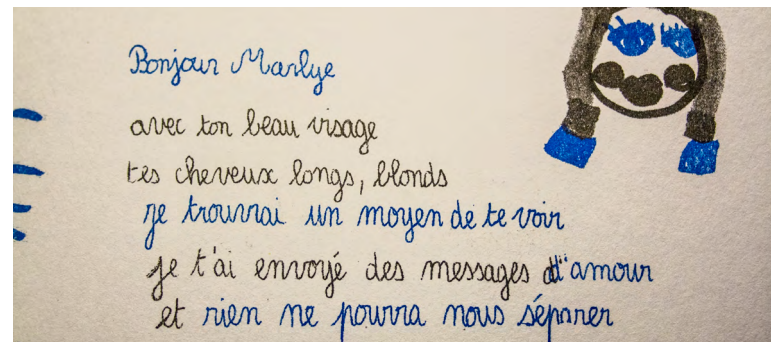 Bonjour Marlye
avec ton beau visage
tes cheveux longs, blonds
je trouvrai un moyen de te voir
je t'ai envoyé des messages d'amour
et rien ne pourra nous séparer